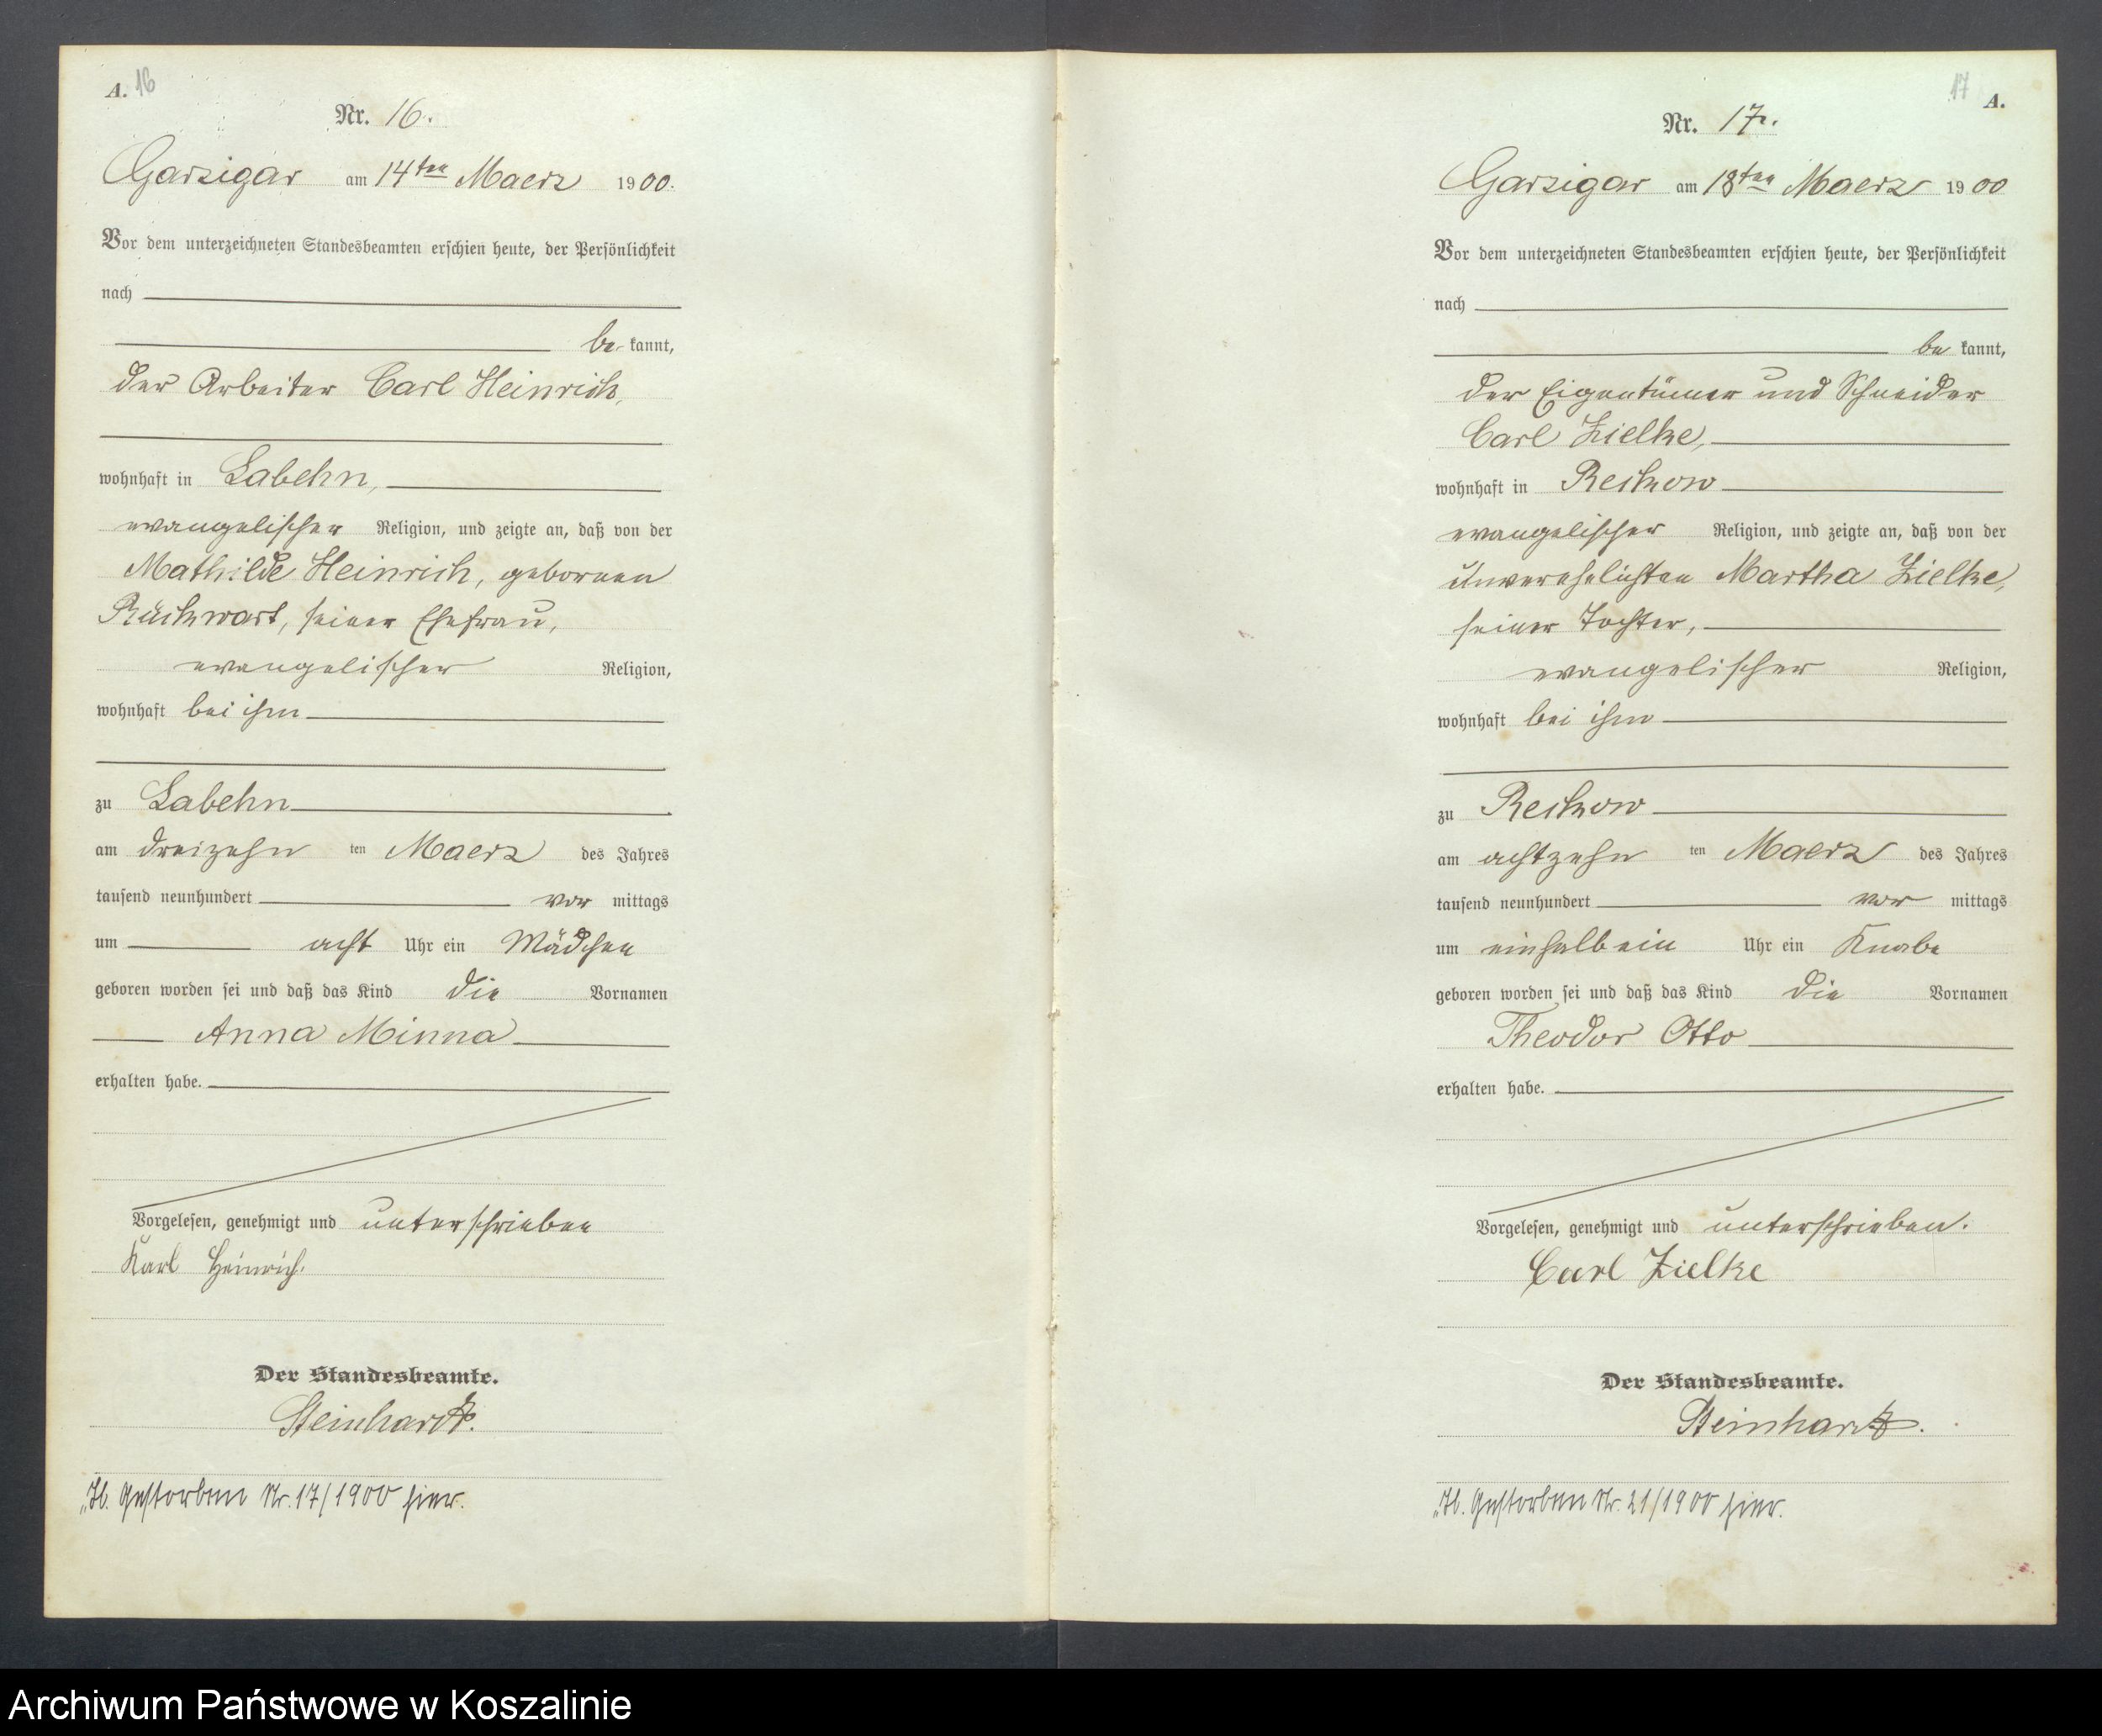 A. 16
Nr. 16.
Garzigar am 14ten Maerz 1900.
Vor dem unterzeichneten Standesbeamten erschien heute, der Persönlichkeit
nach
be kannt,
der Arbeiter Carl Heinrich,
wohnhaft in Labehn,
evangelischer Religion, und zeigte an, daß von der
Mathilde Heinrich, geborenen
Rückwart, seiner Ehefrau,
evangelischer Religion,
wohnhaft bei ihm
zu Labehn
am dreizehn ten Maerz des Jahres
tausend neunhundert vor mittags
um acht Uhr ein Mädchen
geboren worden sei und daß das Kind die Vornamen
Anna Minna
erhalten habe.
Vorgelesen, genehmigt und unterschrieben
Karl Heinrich.
Der Standesbeamte.
Steinhardt.
Gestorben Nr. 17/1900 hier.
17 A.
Nr. 17.
Garzigar am 18ten Maerz 1900
Vor dem unterzeichneten Standesbeamten erschien heute, der Persönlichkeit
nach
be kannt,
der Eigentümer und Schneider
Carl Zielke,
wohnhaft in Reckow
evangelischer Religion, und zeigte an, daß von der
unverehelichten Martha Zielke,
seiner Tochter,
evangelischer Religion,
wohnhaft bei ihm
zu Reckow
am achtzehn ten Maerz des Jahres
tausend neunhundert vor mittags
um einhalb ein Uhr ein Knabe
geboren worden sei und daß das Kind die Vornamen
Theodor Otto
erhalten habe.
Vorgelesen, genehmigt und unterschrieben.
Carl Zielke
Der Standesbeamte.
Steinhardt.
Gestorben Nr. 21/1900 hier.
Archiwum Państwowe w Koszalinie